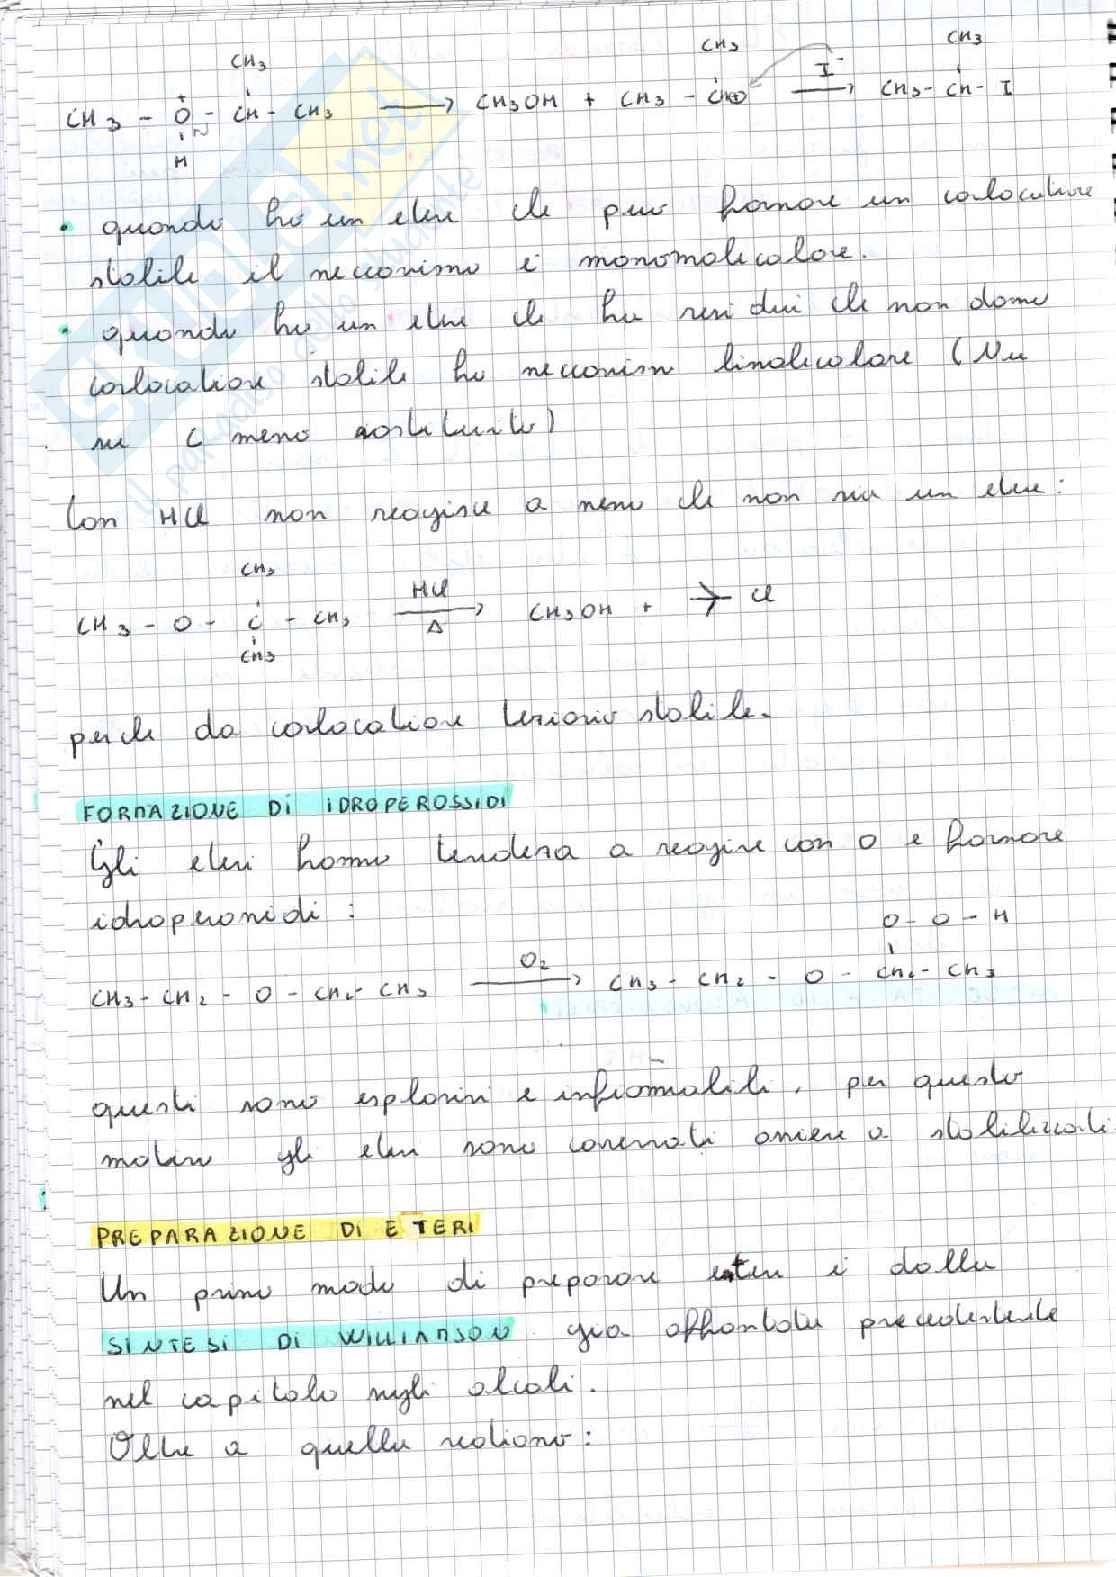 CH3 CH3 CH3
CH3 - O+ - CH - CH3 → CH3OH + CH3 - CH⊕ I⁻ → CH3 - CH - I
H
• quando ho un etere che puo formare un carbocatione
stabile il meccanismo è monomolecolare.
• quando ho un etere che ha residui che non danno
carbocatione stabile ho meccanism bimolecolare (Nu
su C meno sostituito)
Con HCl non reagisce a meno che non sia un etere:
CH3
CH3 - O - C - CH3 HCl → Δ CH3OH + Cl
CH3
perche da carbocatione terziario stabile.
FORMAZIONE DI IDROPEROSSIDI
Gli eteri hanno tendenza a reagire con O e formare
idroperossidi:
O - O - H
CH3 - CH2 - O - CH2 - CH3 O2 → CH3 - CH2 - O - CH2 - CH3
questi sono esplosivi e infiammabili, per questo
motivo gli eteri sono conservati assieme a stabilizzati
PREPARAZIONE DI ETERI
Un primo modo di preparare eteri è dalla
SINTESI DI WILLIAMSON gia affrontata precedentemente
nel capitolo sugli alcoli.
Oltre a quella reazione: